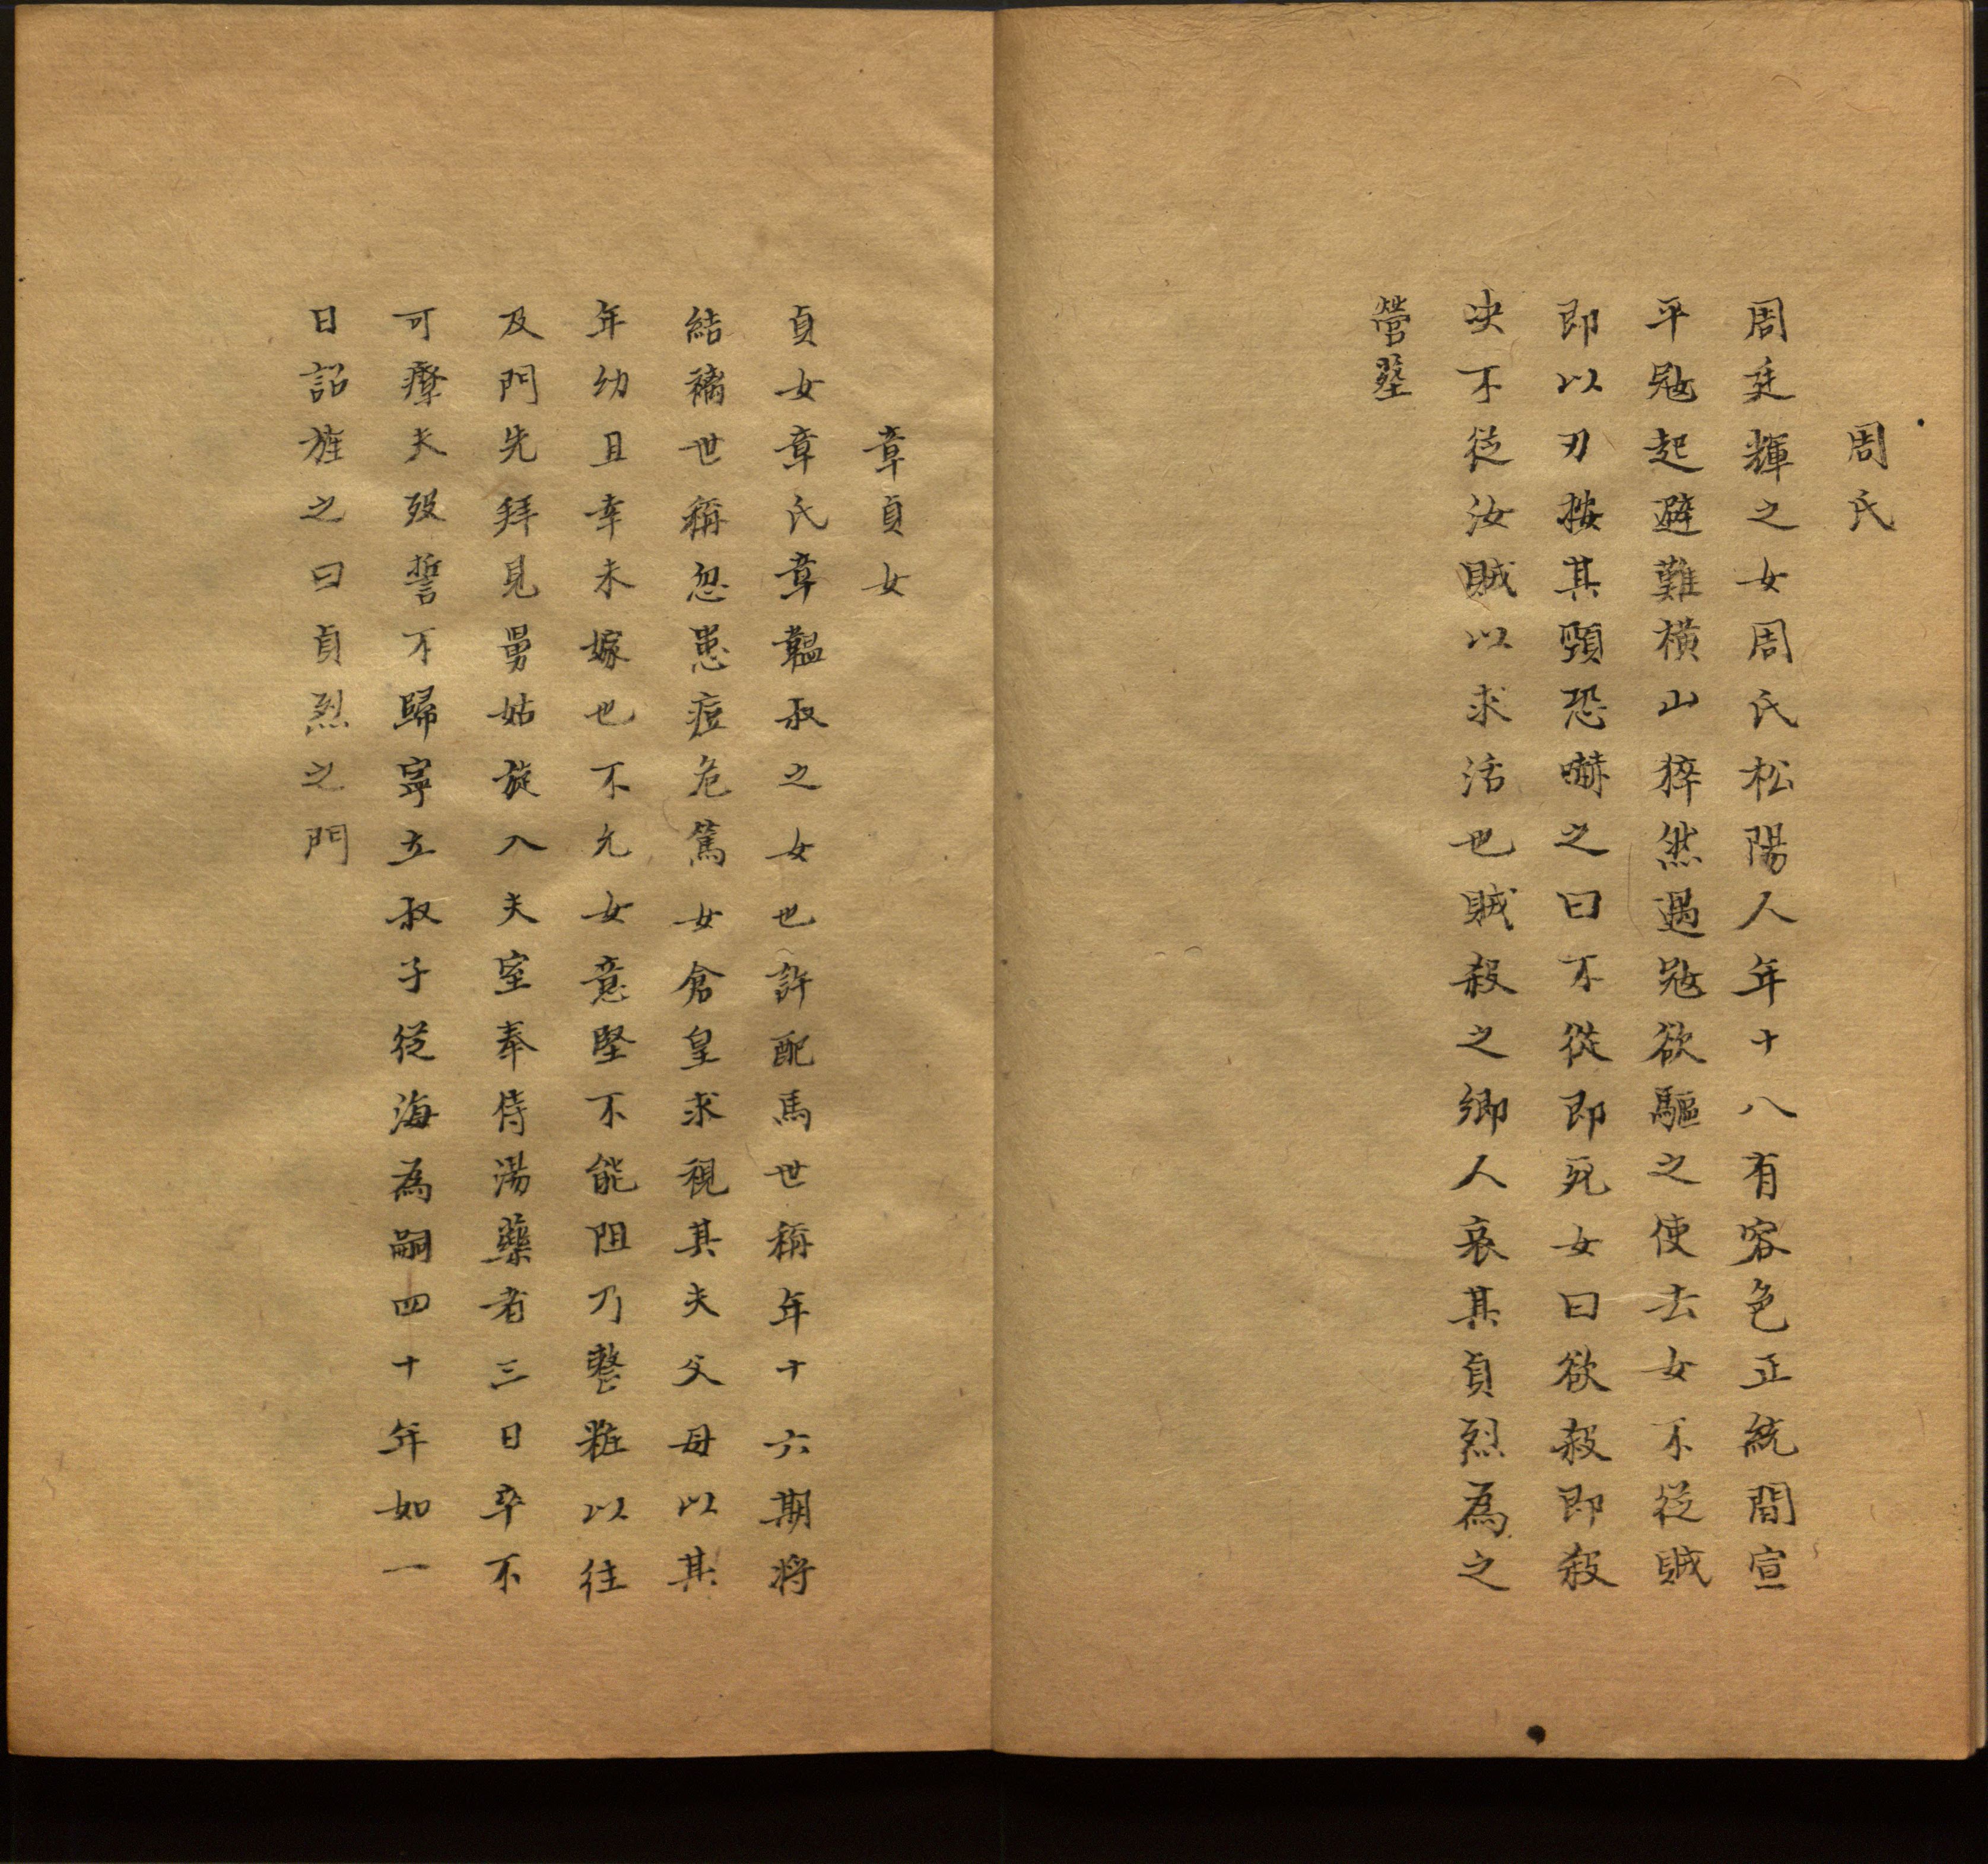 周氏
周廷輝之女周氏松陽人年十八有容色正統間宣
平㓂起避難橫山猝然遇㓂欲驅之使去女不従賊
即以刃按其頸恐嚇之曰不從即死女曰欲殺即殺
决不従汝賊以求活也賊殺之鄉人哀其貞烈為之
營塟
章貞女
貞女章氏章韞叔之女也許配馬世稱年十六期将
結褵世稱忽患痘危篤女倉皇求視其夫父母以其
年幼且幸未嫁也不允女意堅不能阻乃整粧以往
及門先拜見舅姑旋入夫室奉侍湯藥者三日卒不
可療夫歿誓不歸寧立叔子従海為嗣四十年如一
日詔旌之曰貞烈之門